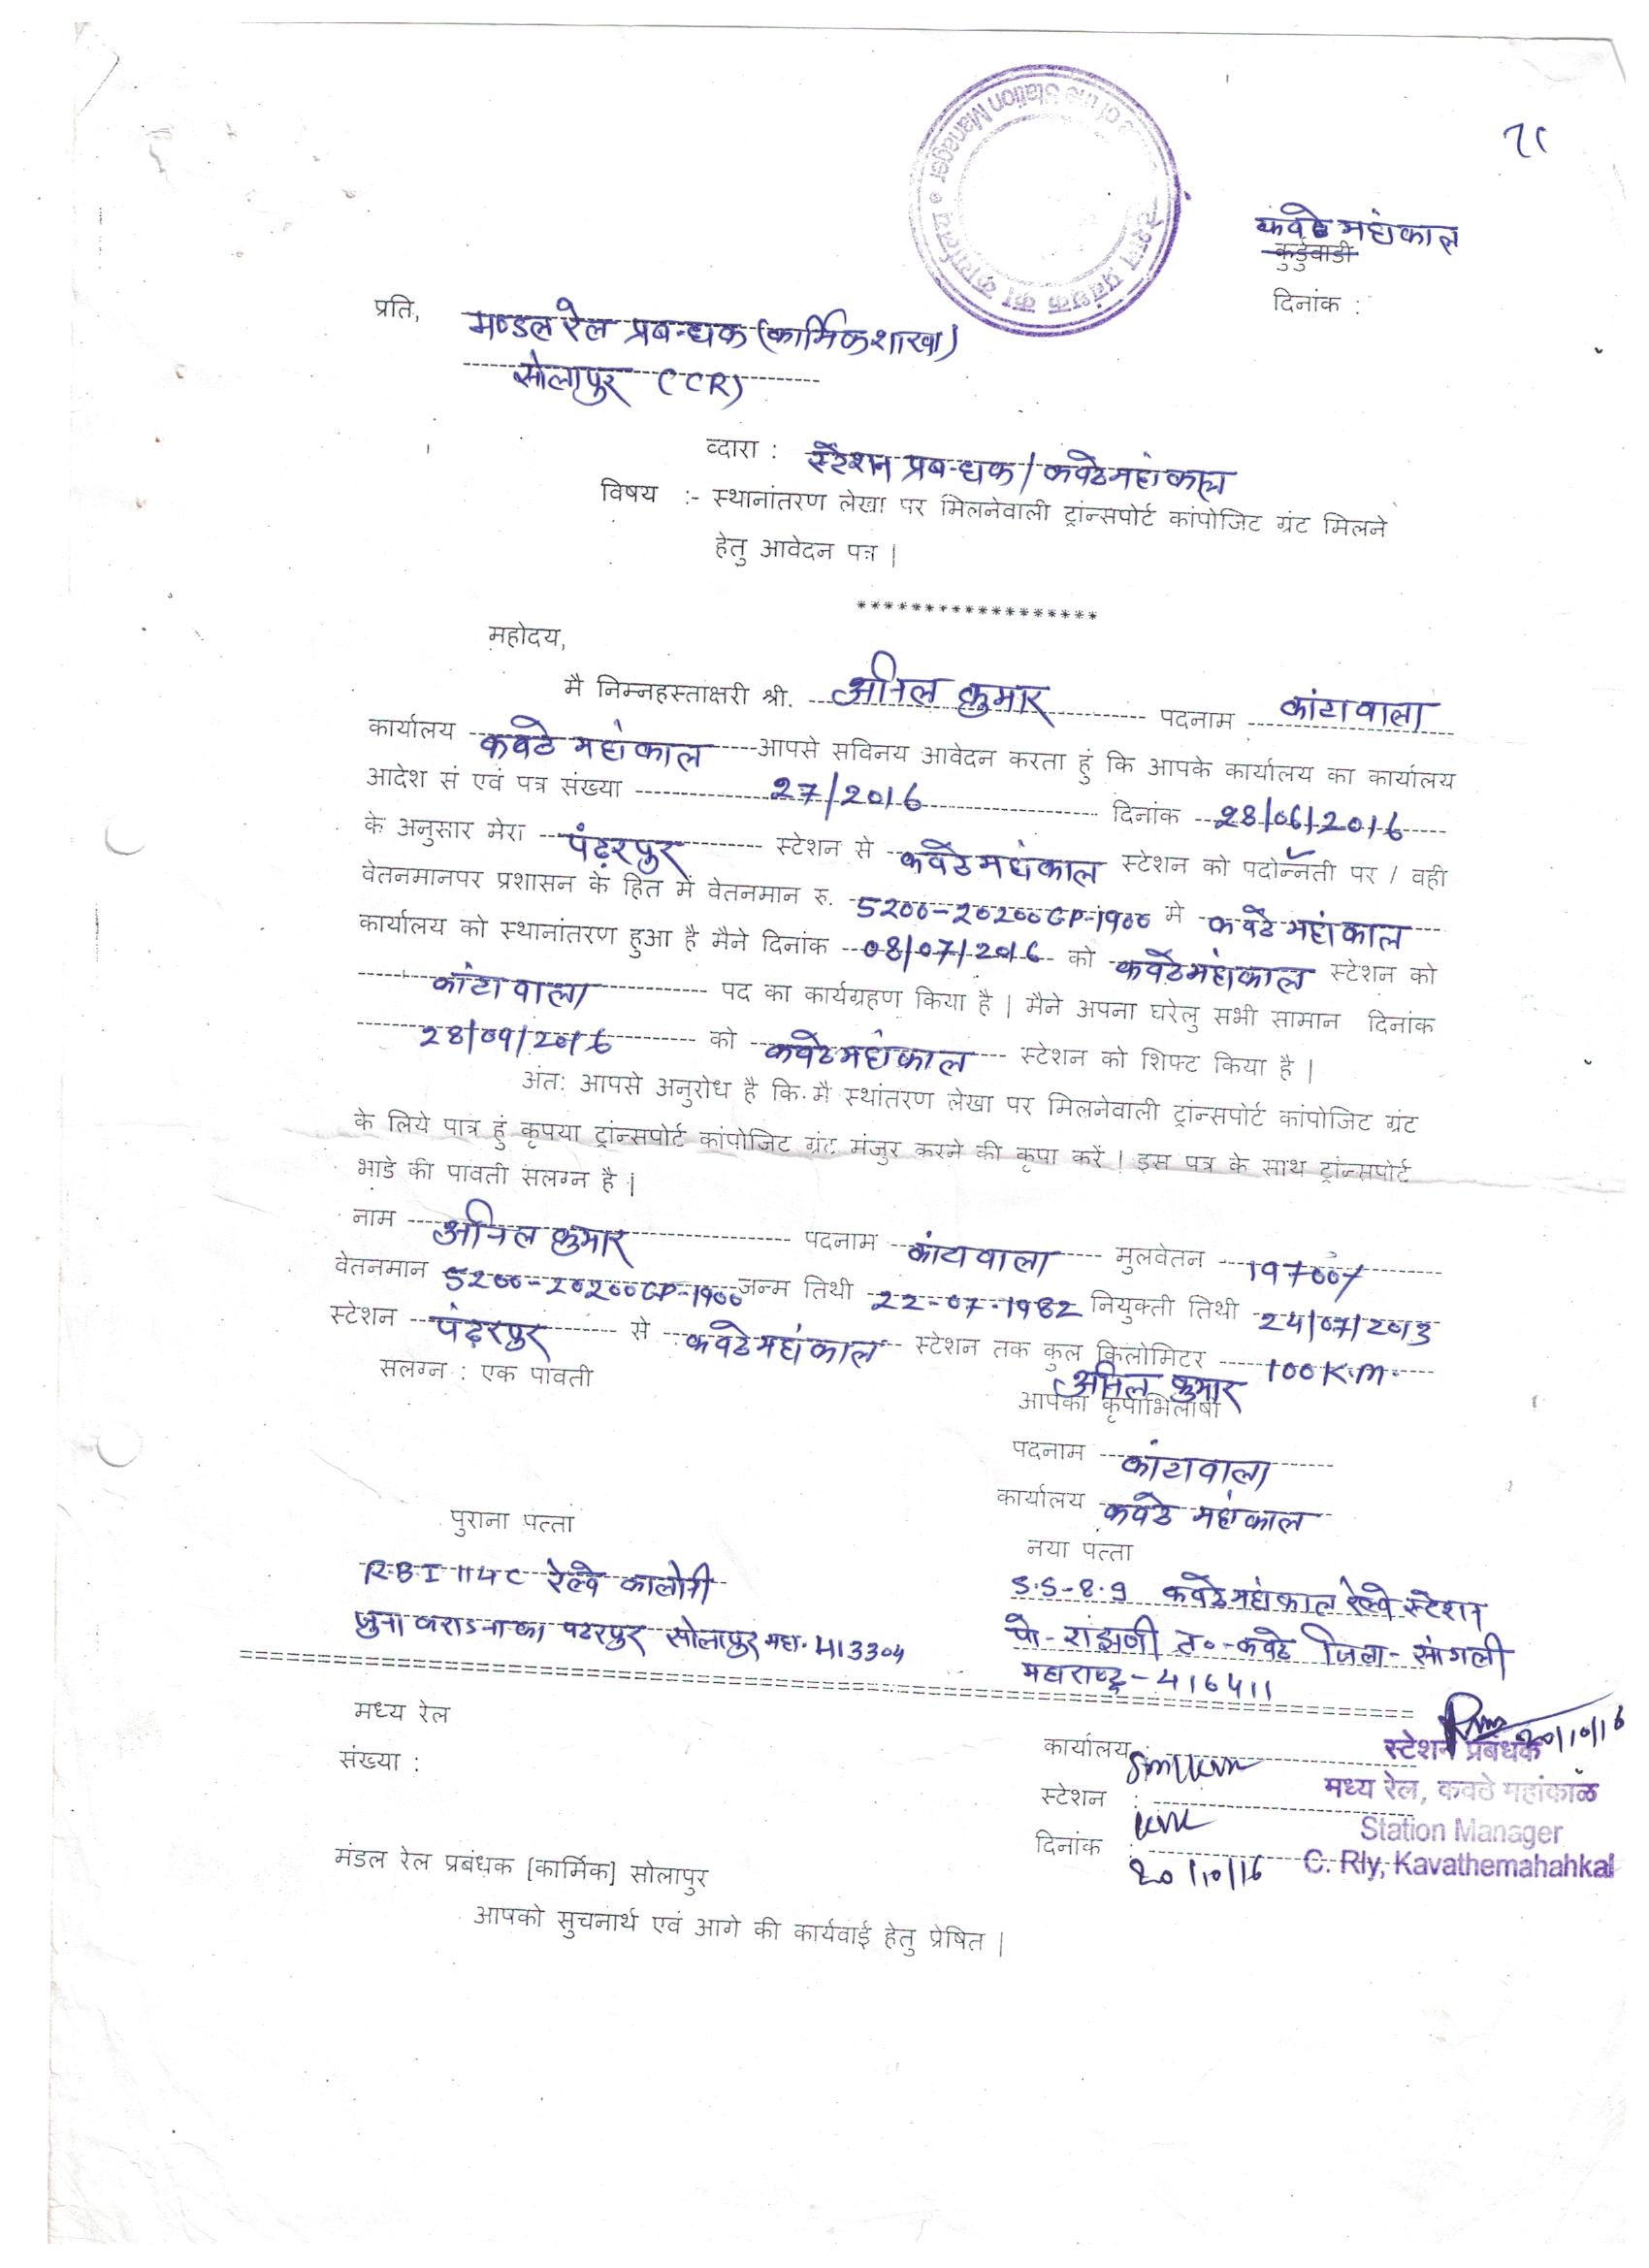 Office of the Station Manager
स्टेशन प्रबंधक का कार्यालय
कवठे महांकाल
कुर्डुवाडी
दिनांक :
प्रति,
मण्डल रेल प्रबन्धक (कार्मिक शाखा)
सोलापुर (CCR)
व्दारा : स्टेशन प्रबन्धक / कवठेमहांकाल
विषय :- स्थानांतरण लेखा पर मिलनेवाली ट्रांन्सपोर्ट कांपोजिट ग्रंट मिलने
हेतु आवेदन पत्र |
******************
महोदय,
मै निम्नहस्ताक्षरी श्री. अनिल कुमार पदनाम कांटावाला
कार्यालय कवठे महांकाल आपसे सविनय आवेदन करता हुं कि आपके कार्यालय का कार्यालय
आदेश सं एवं पत्र संख्या 27/2016 दिनांक 28/06/2016
के अनुसार मेरा पंढ़रपुर स्टेशन से कवठेमहांकाल स्टेशन को पदोन्नती पर / वही
वेतनमानपर प्रशासन के हित में वेतनमान रु. 5200-20200 GP-1900 मे कवठे महांकाल
कार्यालय को स्थानांतरण हुआ है मैने दिनांक 08/07/2016 को कवठेमहांकाल स्टेशन को
कांटावाला पद का कार्यग्रहण किया है | मैने अपना घरेलु सभी सामान दिनांक
28/09/2016 को कवठेमहांकाल स्टेशन को शिफ्ट किया है |
अंतः आपसे अनुरोध है कि मै स्थांतरण लेखा पर मिलनेवाली ट्रांन्सपोर्ट कांपोजिट ग्रंट
के लिये पात्र हुं कृपया ट्रांन्सपोर्ट कांपोजिट ग्रंट मंजुर करने की कृपा करें | इस पत्र के साथ ट्रांन्सपोर्ट
भाडे की पावती सलग्न है |
नाम अनिल कुमार पदनाम कांटावाला मुलवेतन 19700/
वेतनमान 5200-20200 GP-1900 जन्म तिथी 22-07-1982 नियुक्ती तिथी 24/07/2013
स्टेशन पंढ़रपुर से कवठेमहांकाल स्टेशन तक कुल किलोमिटर 100 K.m.
सलग्न : एक पावती
अनिल कुमार
आपका कृपाभिलाषी
पदनाम कांटावाला
कार्यालय कवठे महांकाल
पुराना पत्ता
R.B.I 114 C रेल्वे कालोनी
जुना कराडनाका पंढरपुर सोलापुर महा. 413304
नया पत्ता
S.S-8.9 कवठेमहांकाल रेल्वे स्टेशन
पो- रांझणी त०-कवठे जिला- सांगली
महाराष्ट्र - 416411
मध्य रेल
संख्या :
20/10/16
कार्यालय : Sm/KVK
स्टेशन : KVK
दिनांक : 20/10/16
स्टेशन प्रबंधक
मध्य रेल, कवठे महांकाळ
Station Manager
C. Rly, Kavathemahahkal
मंडल रेल प्रबंधक [कार्मिक] सोलापुर
आपको सुचनार्थ एवं आगे की कार्यवाई हेतु प्रेषित |